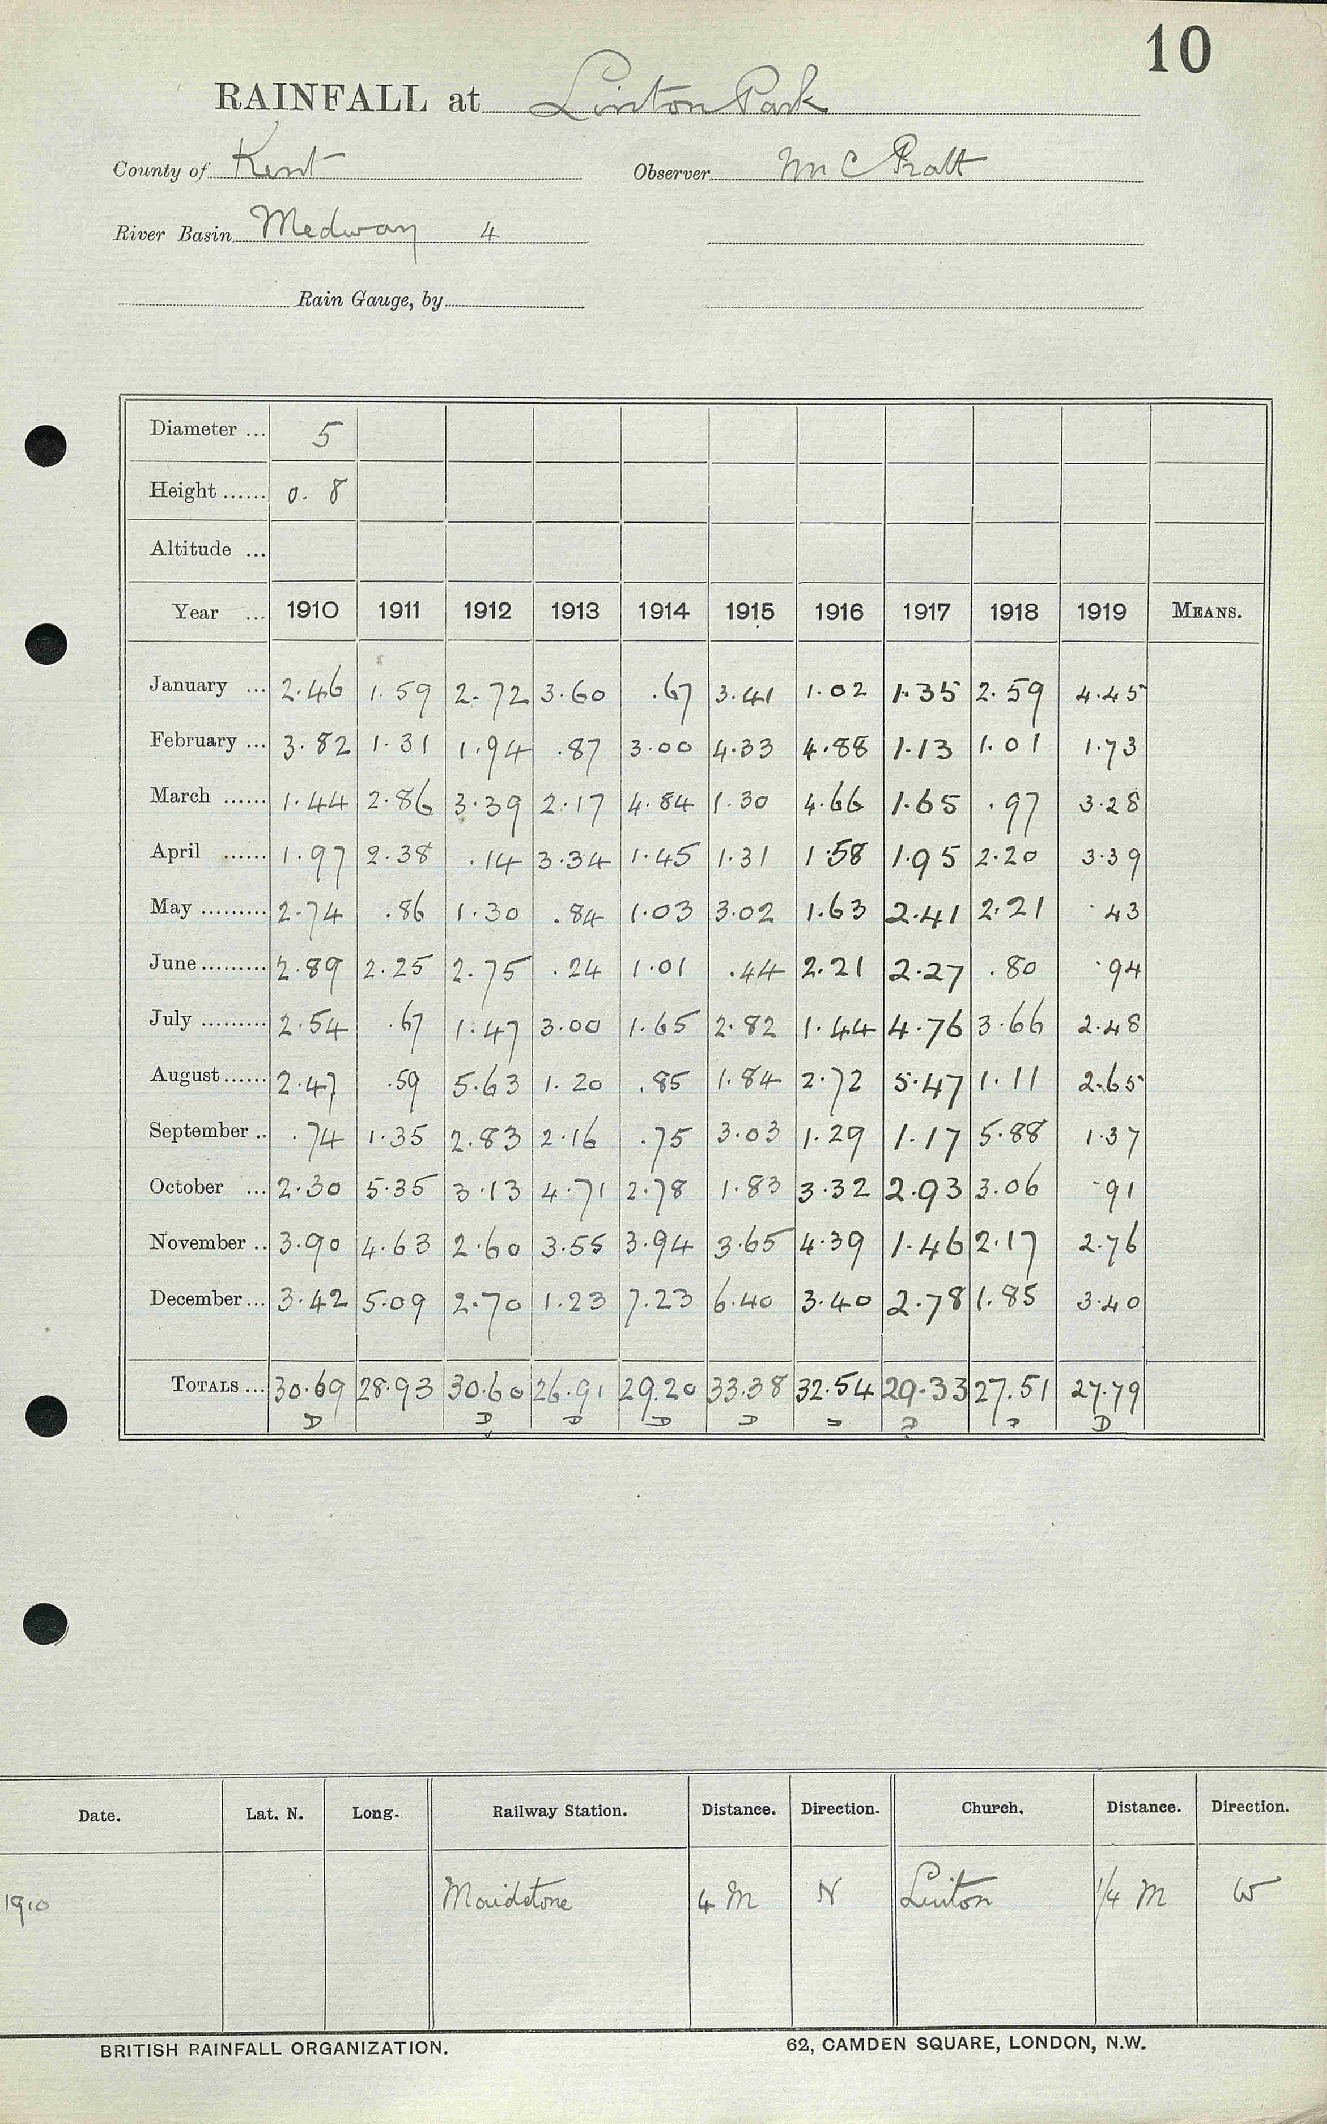 10
RAINFALL at Linton Park
County of Kent Observer Mr C Pratt
River Basin Medway 4
Rain Gauge, by
Diameter ... 5
Height ...... 0. 8
Altitude ...
Year ... 1910 1911 1912 1913 1914 1915 1916 1917 1918 1919 MEANS.
January ... 2.46 1.59 2.72 3.60 .67 3.41 1.02 1.35 2.59 4.45
February ... 3.82 1.31 1.94 .87 3.00 4.33 4.88 1.13 1.01 1.73
March ...... 1.44 2.86 3.39 2.17 4.84 1.30 4.66 1.65 .97 3.28
April ...... 1.97 2.38 .14 3.34 1.45 1.31 1.58 1.95 2.20 3.39
May ......... 2.74 .86 1.30 .84 1.03 3.02 1.63 2.41 2.21 .43
June ......... 2.89 2.25 2.75 .24 1.01 .44 2.21 2.27 .80 .94
July ......... 2.54 .67 1.47 3.00 1.65 2.82 1.44 4.76 3.66 2.48
August ...... 2.47 .59 5.63 1.20 .85 1.84 2.72 5.47 1.11 2.65
September .. .74 1.35 2.83 2.16 .75 3.03 1.29 1.17 5.88 1.37
October ... 2.30 5.35 3.13 4.71 2.78 1.83 3.32 2.93 3.06 .91
November .. 3.90 4.63 2.60 3.55 3.94 3.65 4.39 1.46 2.17 2.76
December ... 3.42 5.09 2.70 1.23 7.23 6.40 3.40 2.78 1.85 3.40
TOTALS ... 30.69 28.93 30.60 26.91 29.20 33.38 32.54 29.33 27.51 27.79
D D D D D D D D D
Date. Lat. N. Long. Railway Station. Distance. Direction. Church. Distance. Direction.
1910 Maidstone 4 M N Linton 1/4 M W
BRITISH RAINFALL ORGANIZATION. 62, CAMDEN SQUARE, LONDON, N.W.